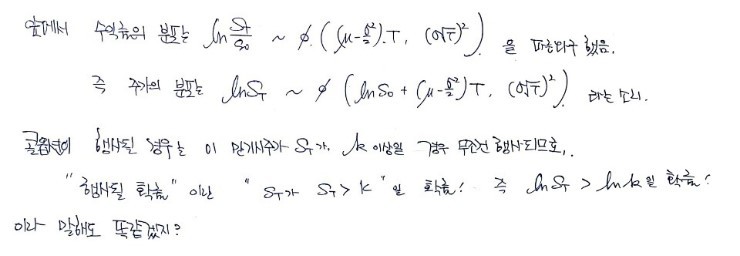 앞에서 수익률의 분포는 ln S_T/S_0 ~ φ((μ-σ²/2)·T, (σ√T)²) 을 따른다구 했음.
즉 주가의 분포는 lnS_T ~ φ(lnS_0 + (μ-σ²/2)T, (σ√T)²) 라는 소리.
콜옵션이 행사될 경우는 이 만기시주가 S_T가 k 이상일 경우 무조건 행사되므로,
"행사될 확률" 이란 "S_T가 S_T > K" 일 확률! 즉 lnS_T > lnk일 확률!
이라 말해도 똑같겠지?